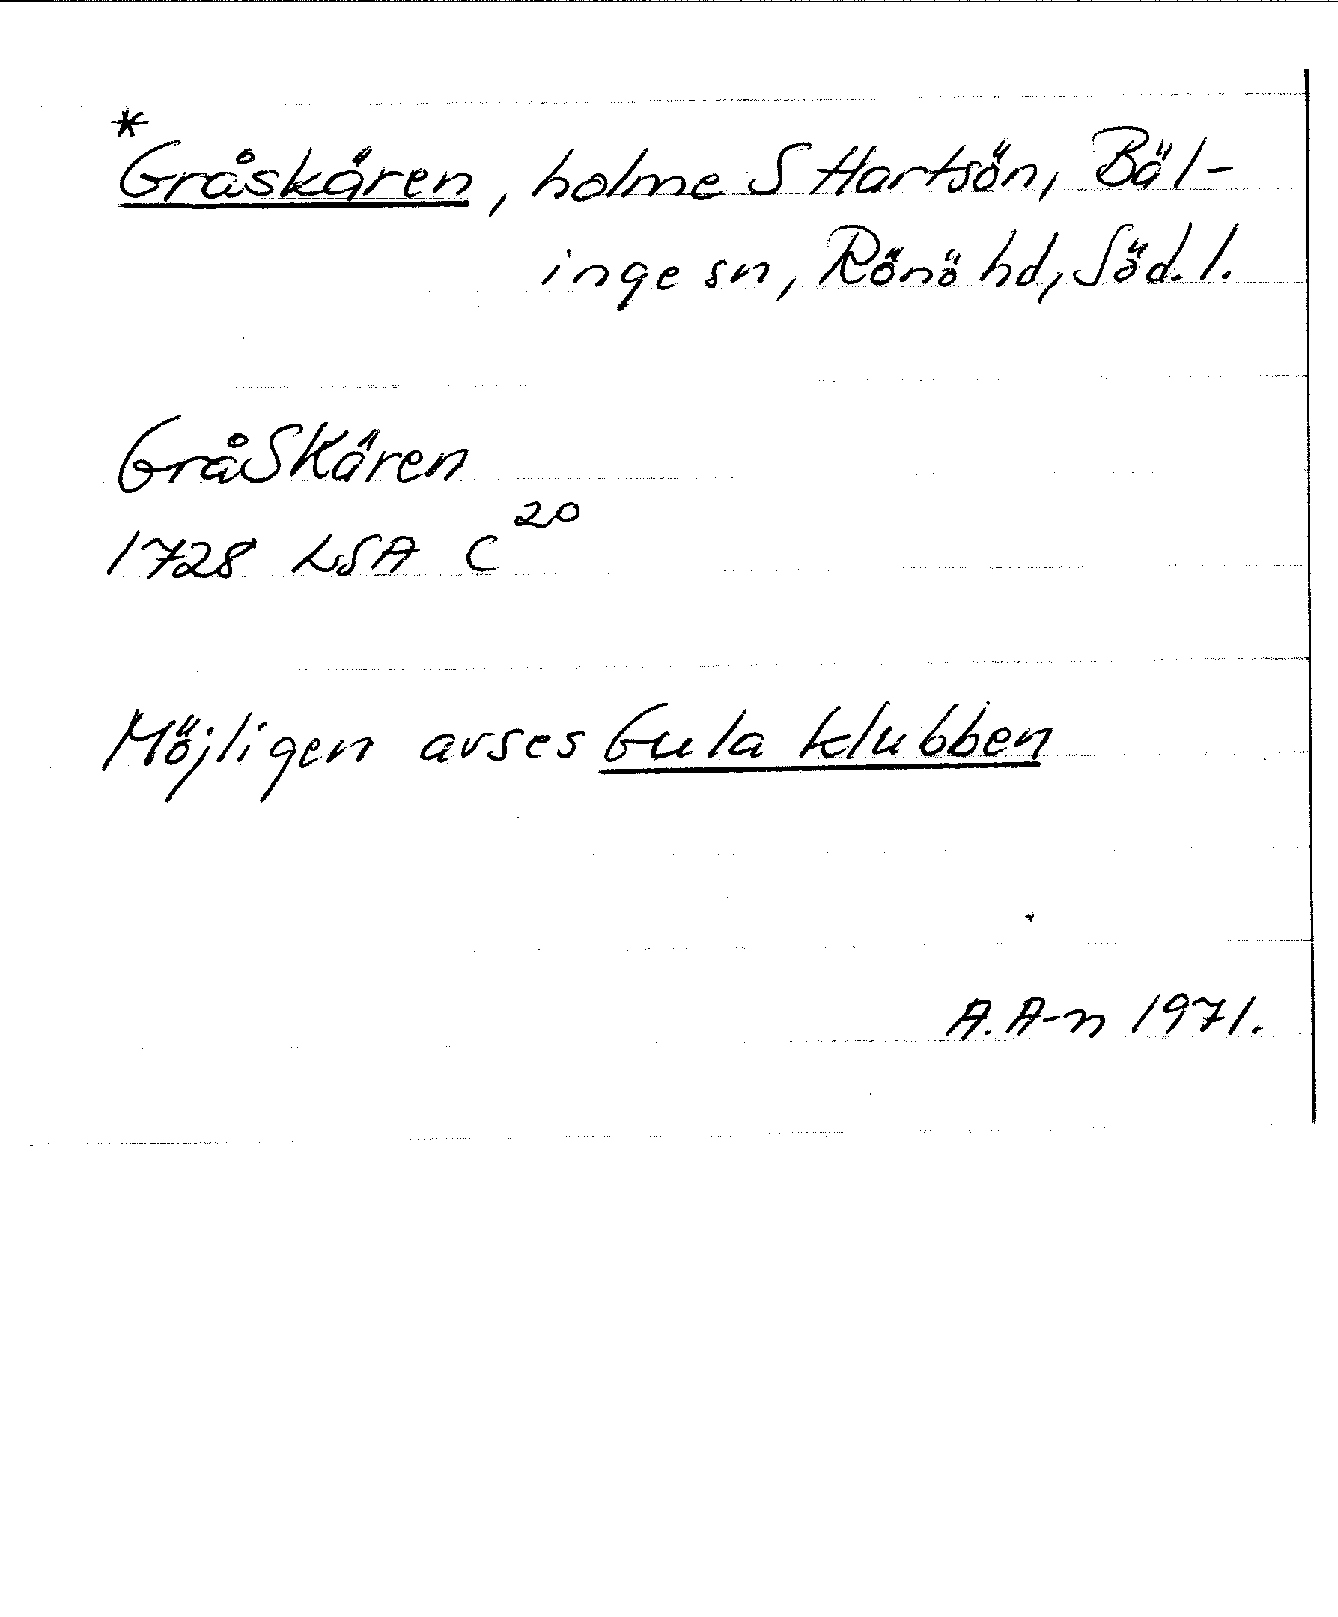 *
Gråskären, holme S Hartsön, Bäl-
inge sn, Rönö hd, Söd. l.
GråSKären
1728 LSA C20
Möjligen avses Gula klubben
A. A-n 1971.